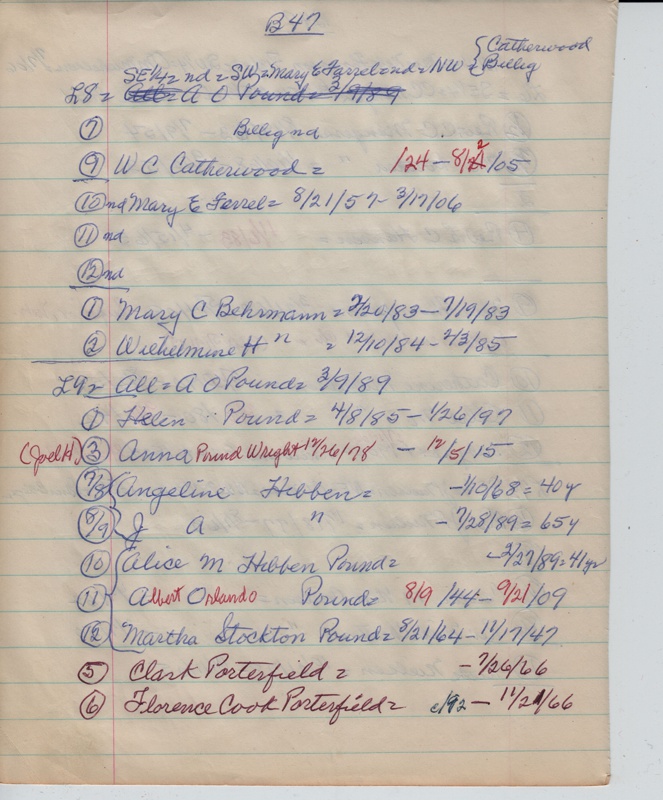 B47
{Catherwood
SE 1/4 = nd = SW = Mary E Farrel = nd = NW = {Billig
L8 = All = A O Pound = 3/9/89
(7) Billig nd
(9) W C Catherwood = /24 – 8/2/05
(10) nd Mary E Ferrel = 8/21/57 – 3/17/06
(11) nd
(12) nd
(1) Mary C Behrmann = 2/20/83 – 7/19/83
(2) Wilhelmine H " = 12/10/84 – 2/3/85
L9 = All = A O Pound = 3/9/89
(1) Helen Pound = 4/8/85 – 1/26/97
(Joel H) (3) Anna Pound Wright 12/26/78 – 12/5/15
(7/8) {Angeline Hibben = – 1/10/68 = 40 y
(8/9) J A " – 7/28/89 = 65 y
(10) {Alice M Hibben Pound = – 2/27/89 = 41 yr
(11) Albert Orlando Pound = 8/9/44 – 9/21/09
(12) Martha Stockton Pound = 8/21/64 – 11/17/47
(5) Clark Porterfield = – 7/26/66
(6) Florence Cook Porterfield = c/92 – 11/21/66